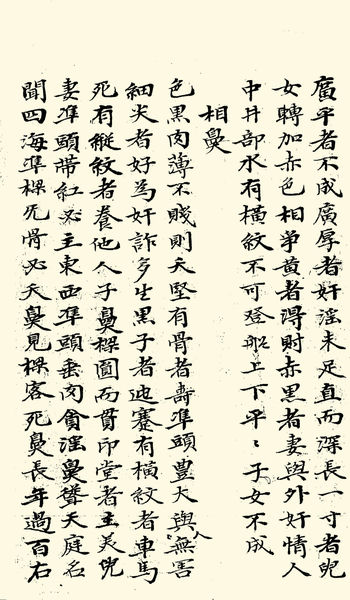 廣平者不成廣厚者奸淫未足直而深長一寸者兒
女轉加赤色相爭黃者得財赤黑者妻與外奸情人
中井部水有橫紋不可登船上下平〻子女不成
相鼻
色黑肉薄不賤則夭堅有骨者壽凖頭豐大與人無害
細尖者好為奸詐多生黑子者迍蹇有橫紋者車馬
死有縱紋者養他人子鼻樑圓而貫印堂者主美兒
妻凖頭帶紅必主東西凖頭垂肉貪淫鼻聳天庭名
聞四海凖樑兀骨必夭鼻見樑客死鼻長年過百右